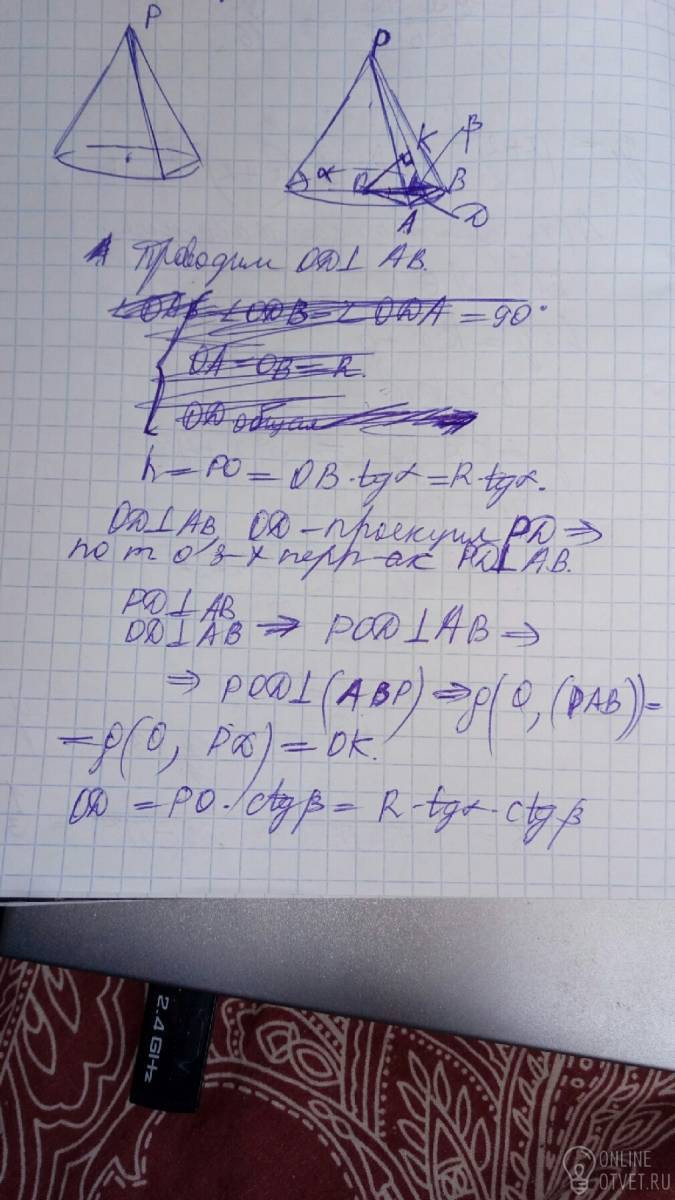 P
P
K
β
α
O
B
A
D
Проводим OD⊥ AB.
∠ODB=∠ODA = 90°
OA=OB=R.
OD общая
h = PO = OB·tgα = R·tgα.
OD⊥AB, OD – проекция PD ⇒
по т о 3-х перп-ах PD⊥AB.
PD⊥AB
OD⊥AB ⇒ POD⊥AB ⇒
⇒ POD⊥(ABP) ⇒ ρ(O, (PAB))=
=ρ(O, PD) = OK.
OD = PO·ctgβ = R·tgα·ctgβ
2.4GHz
ONLINE
OTVET.RU